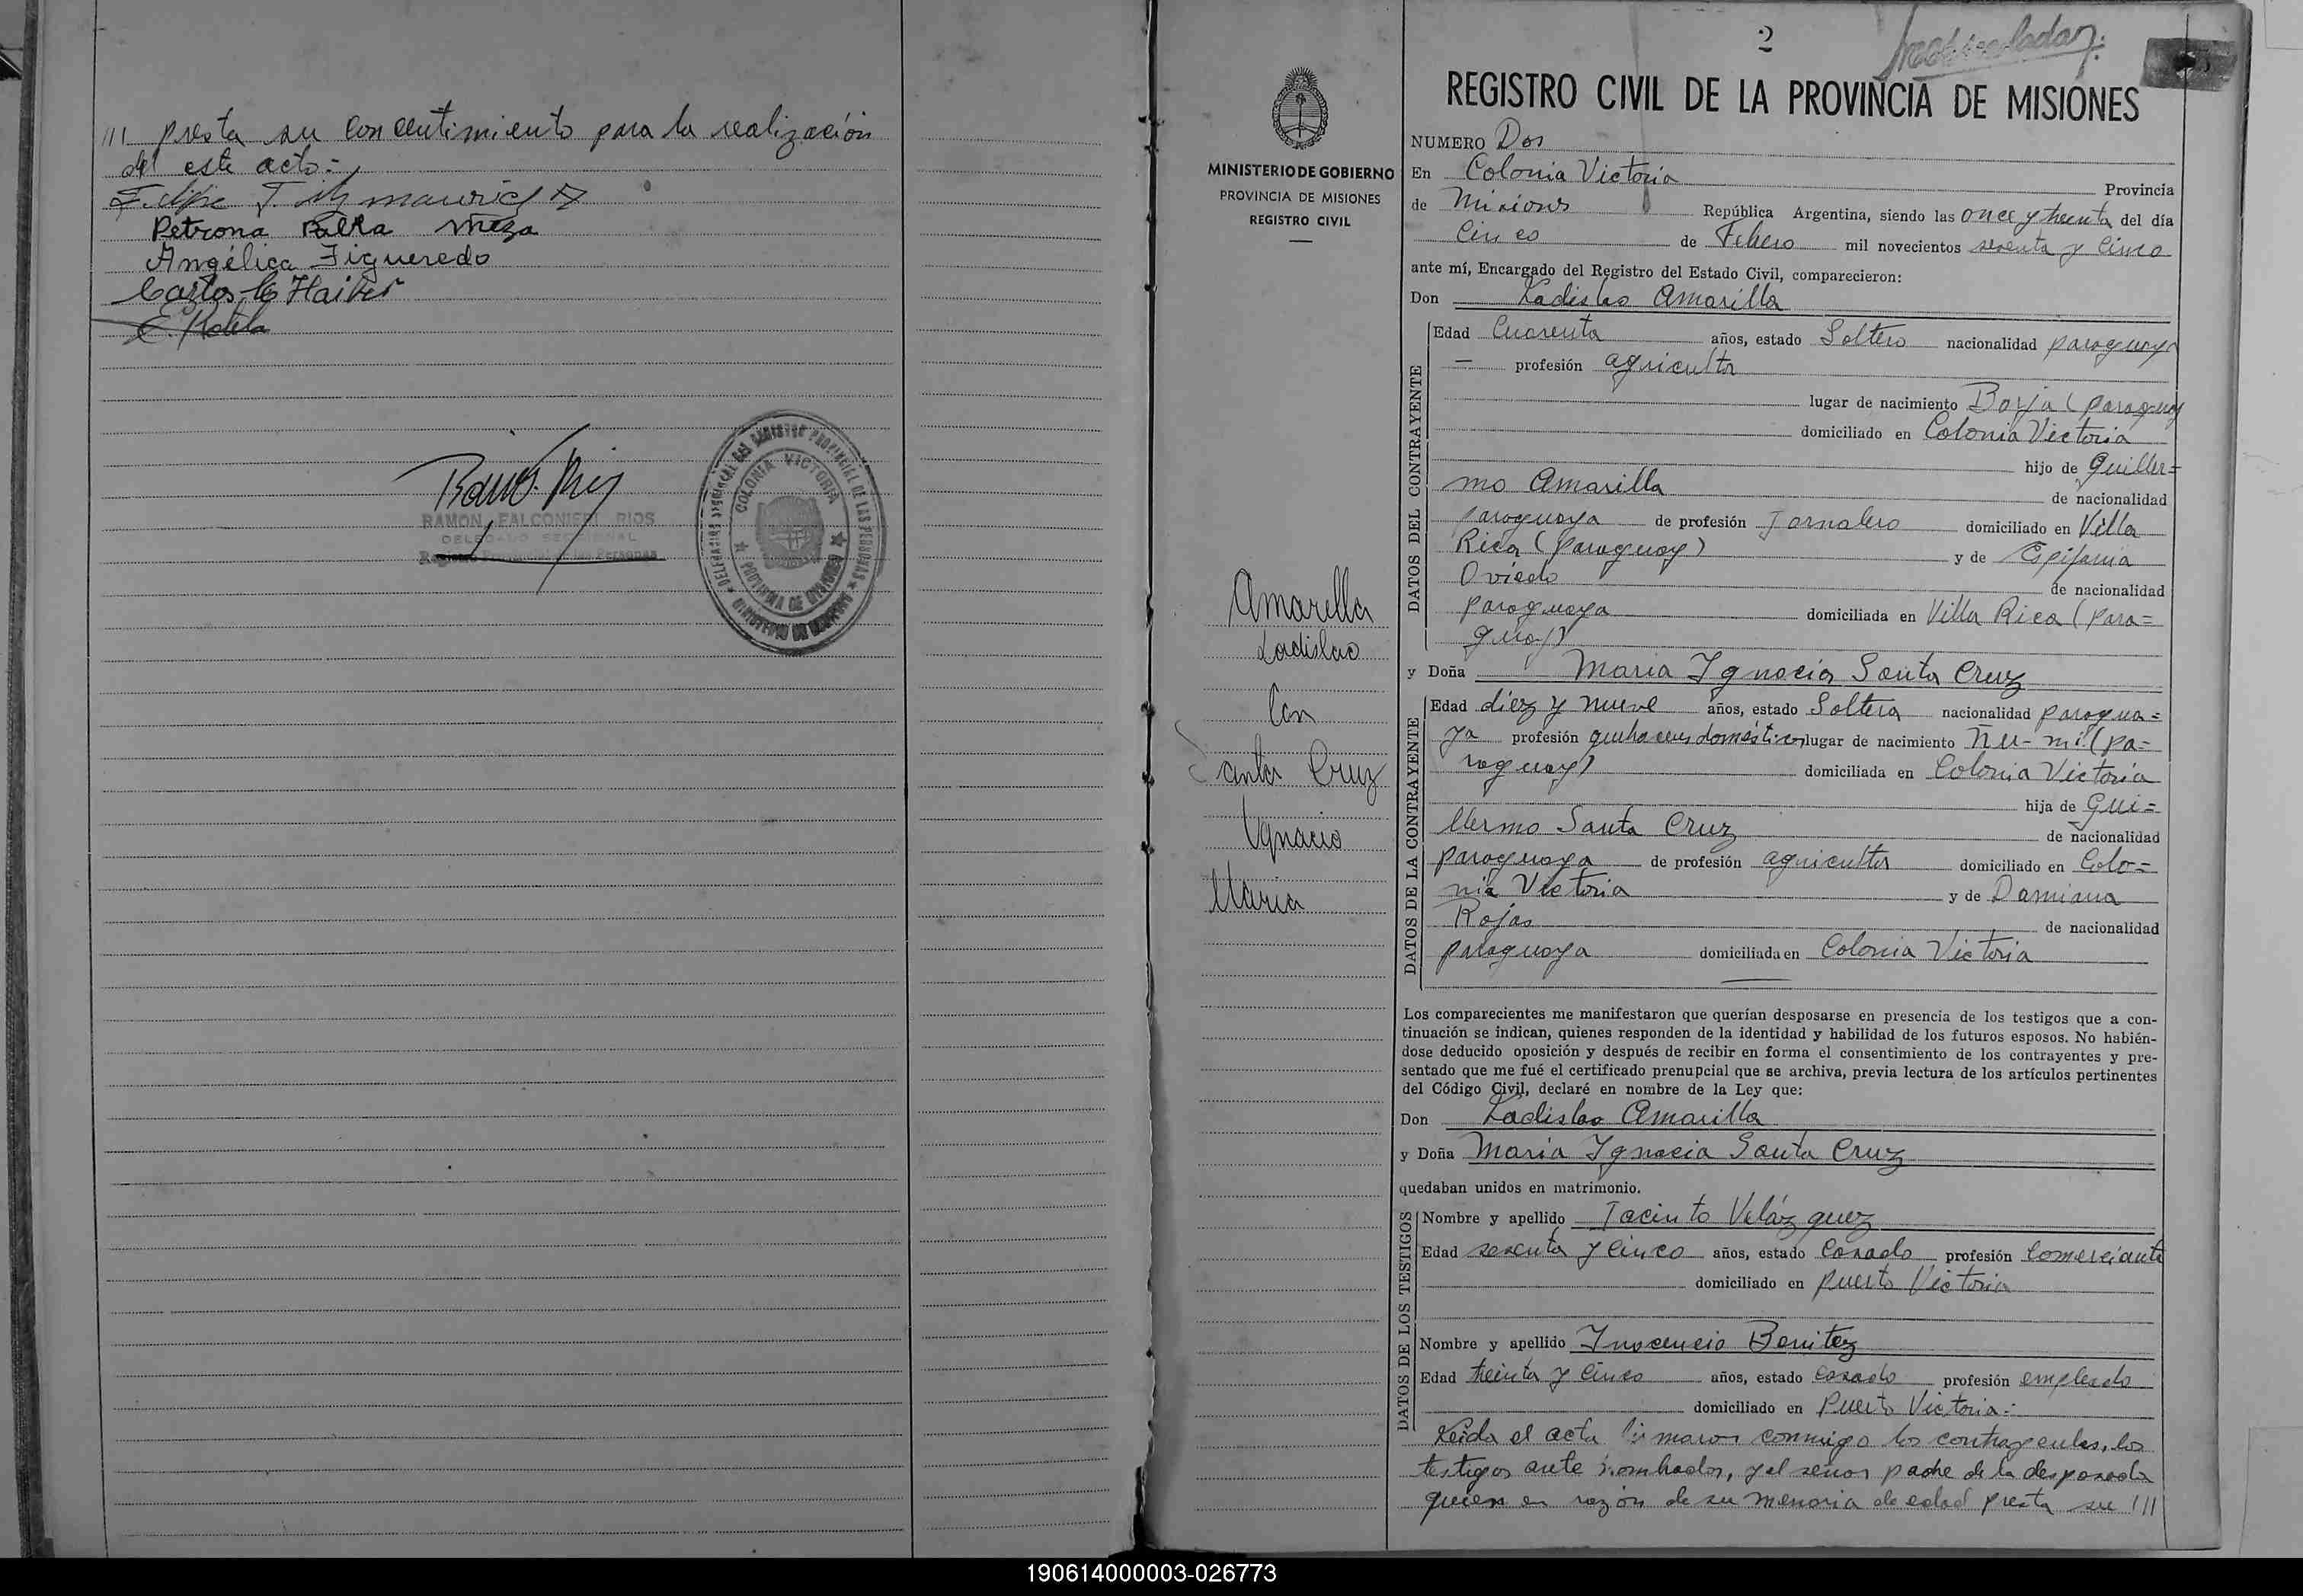 /// presta su concentimiento para la realización
del este acto:-
Petrona Palra Meza
Angélica Figueredo
Carlos
E.
RAMON FALCONIERI RIOS
DELEGADO SECCIONAL
Registro Provincial de las Personas
DELEGACION SECCIONAL DEL REGISTRO PROVINCIAL DE LAS PERSONAS
MINISTERIO DE GOBIERNO
COLONIA VICTORIA
PROVINCIA DE MISIONES
MINISTERIO DE GOBIERNO
PROVINCIA DE MISIONES
REGISTRO CIVIL
Amarilla
Ladislao
Con
Santa Cruz
Ignacia
Maria
2
REGISTRO CIVIL DE LA PROVINCIA DE MISIONES
NUMERO Dos
En Colonia Victoria Provincia
de Misiones República Argentina, siendo las once y treinta del día
Cinco de Febrero mil novecientos sesenta y Cinco
ante mí, Encargado del Registro del Estado Civil, comparecieron:
Don Ladislao Amarilla
DATOS DEL CONTRAYENTE
Edad Cuarenta años, estado Soltero nacionalidad paraguaya
— profesión agricultor
lugar de nacimiento Borja (paraguay
domiciliado en Colonia Victoria
hijo de Guiller=
mo Amarilla de nacionalidad
paraguaya de profesión Jornalero domiciliado en Villa
Rica (paraguay) y de Epifania
Oviedo de nacionalidad
paraguaya domiciliada en Villa Rica (para=
guay)
y Doña Maria Ygnacia Santa Cruz
DATOS DE LA CONTRAYENTE
Edad diez y nueve años, estado Soltera nacionalidad paragua=
ya profesión quehaceres domésticos lugar de nacimiento Ñu-mi (pa=
raguay) domiciliada en Colonia Victoria
hija de Gui=
llermo Santa Cruz de nacionalidad
paraguaya de profesión agricultor domiciliado en Colo=
nia Victoria y de Damiana
Rojas de nacionalidad
paraguaya domiciliada en Colonia Victoria
Los comparecientes me manifestaron que querían desposarse en presencia de los testigos que a con-
tinuación se indican, quienes responden de la identidad y habilidad de los futuros esposos. No habién-
dose deducido oposición y después de recibir en forma el consentimiento de los contrayentes y pre-
sentado que me fué el certificado prenupcial que se archiva, previa lectura de los artículos pertinentes
del Código Civil, declaré en nombre de la Ley que:
Don Ladislao Amarilla
y Doña Maria Ygnacia Santa Cruz
quedaban unidos en matrimonio.
DATOS DE LOS TESTIGOS
Nombre y apellido Jacinto Velázquez
Edad sesenta y Cinco años, estado Casado profesión Comerciante
domiciliado en puerto Victoria
Nombre y apellido Inocencio Benitez
Edad treinta y Cinco años, estado Casado profesión empleado
domiciliado en Puerto Victoria:-
Leida el acta firmaron conmigo los contrayentes, los
testigos ante nombrados, y el señor padre de la desposada
quien en razón de su menoria de edad presta su ///
190614000003-026773